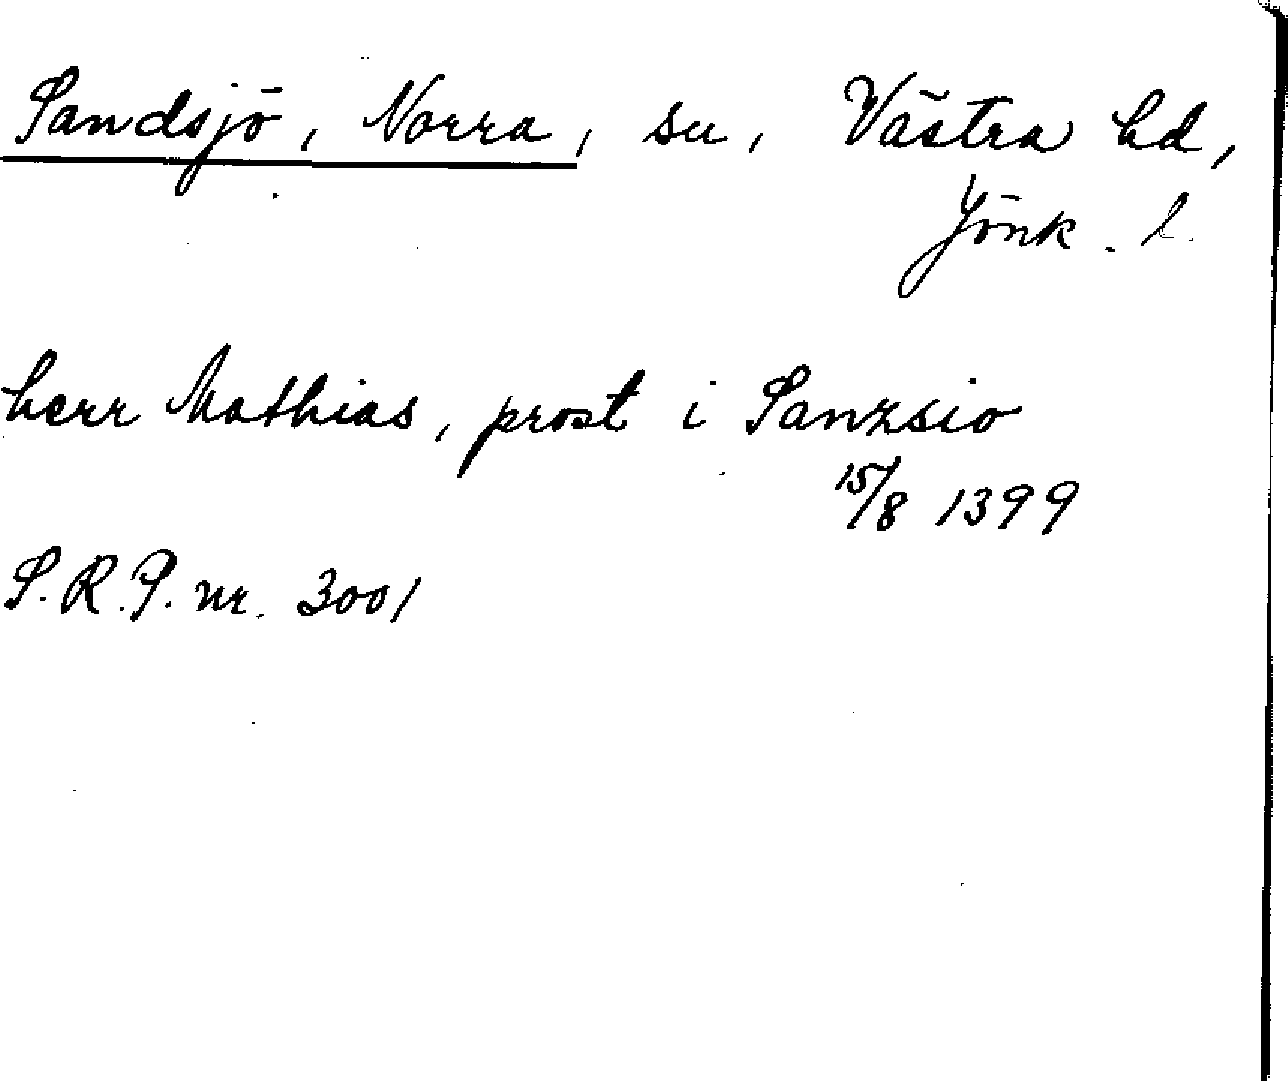 Sandsjö, Norra, sn, Västra hd,
Jönk. l.
herr Mathias, prost i Sanzsio
15/8 1399
S.R.P. nr. 3001